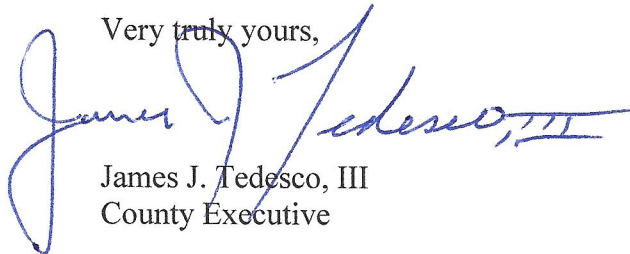 Very truly yours,
James J Tedesco, III
James J. Tedesco, III
County Executive